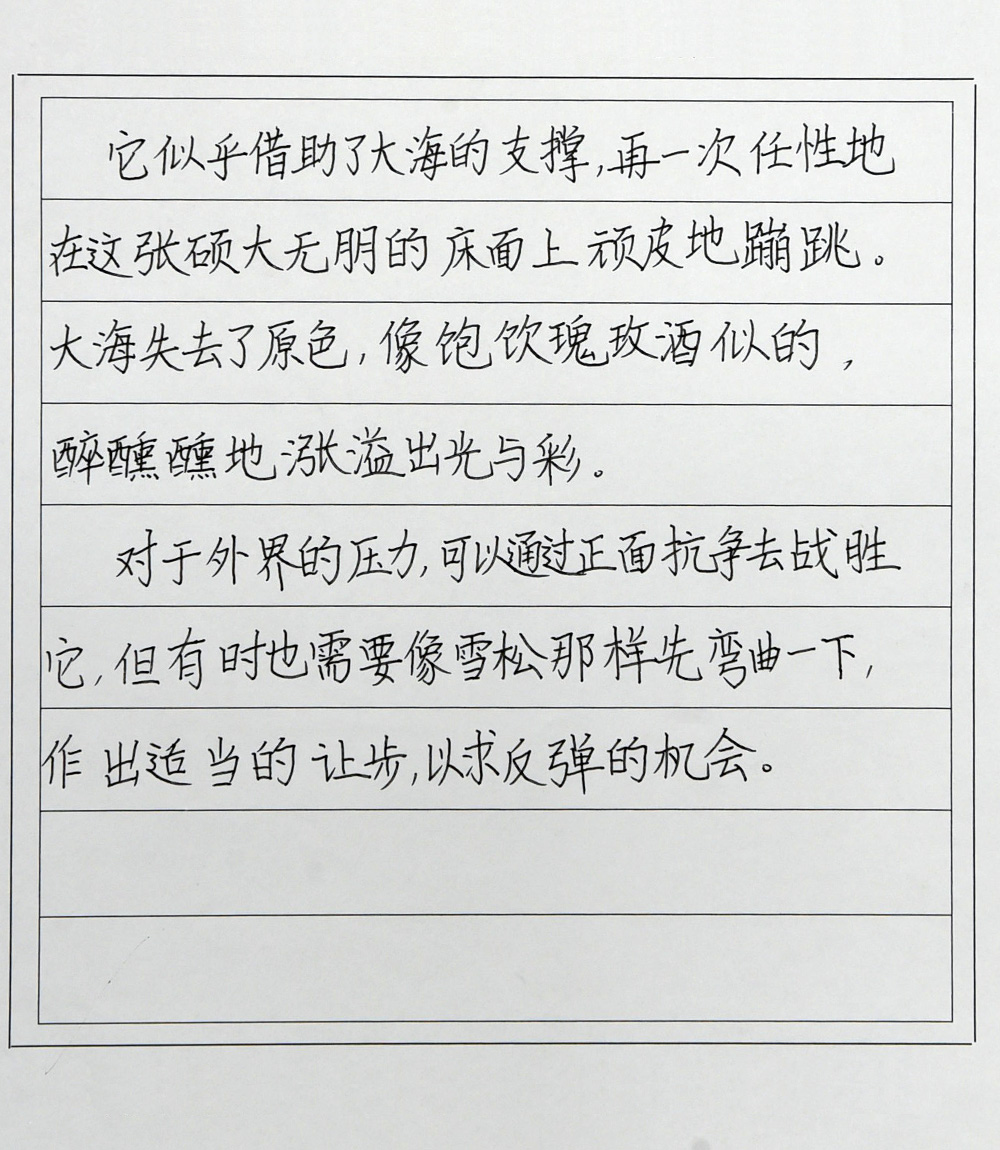 它似乎借助了大海的支撑,再一次任性地
在这张硕大无朋的床面上顽皮地蹦跳。
大海失去了原色,像饱饮瑰玫酒似的,
醉醺醺地涨溢出光与彩。
对于外界的压力,可以通过正面抗争去战胜
它,但有时也需要像雪松那样先弯曲一下,
作出适当的让步,以求反弹的机会。